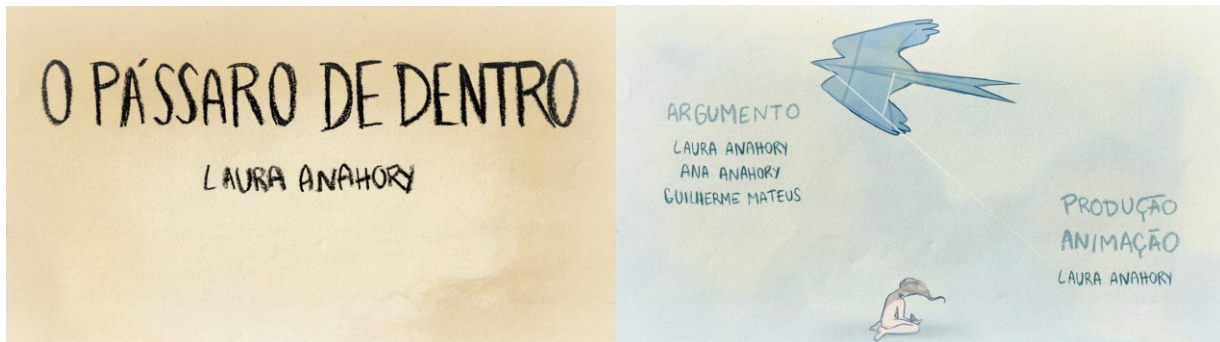 O PÁSSARO DE DENTRO
LAURA ANAHORY
ARGUMENTO
LAURA ANAHORY
ANA ANAHORY
GUILHERME MATEUS
PRODUÇÃO
ANIMAÇÃO
LAURA ANAHORY